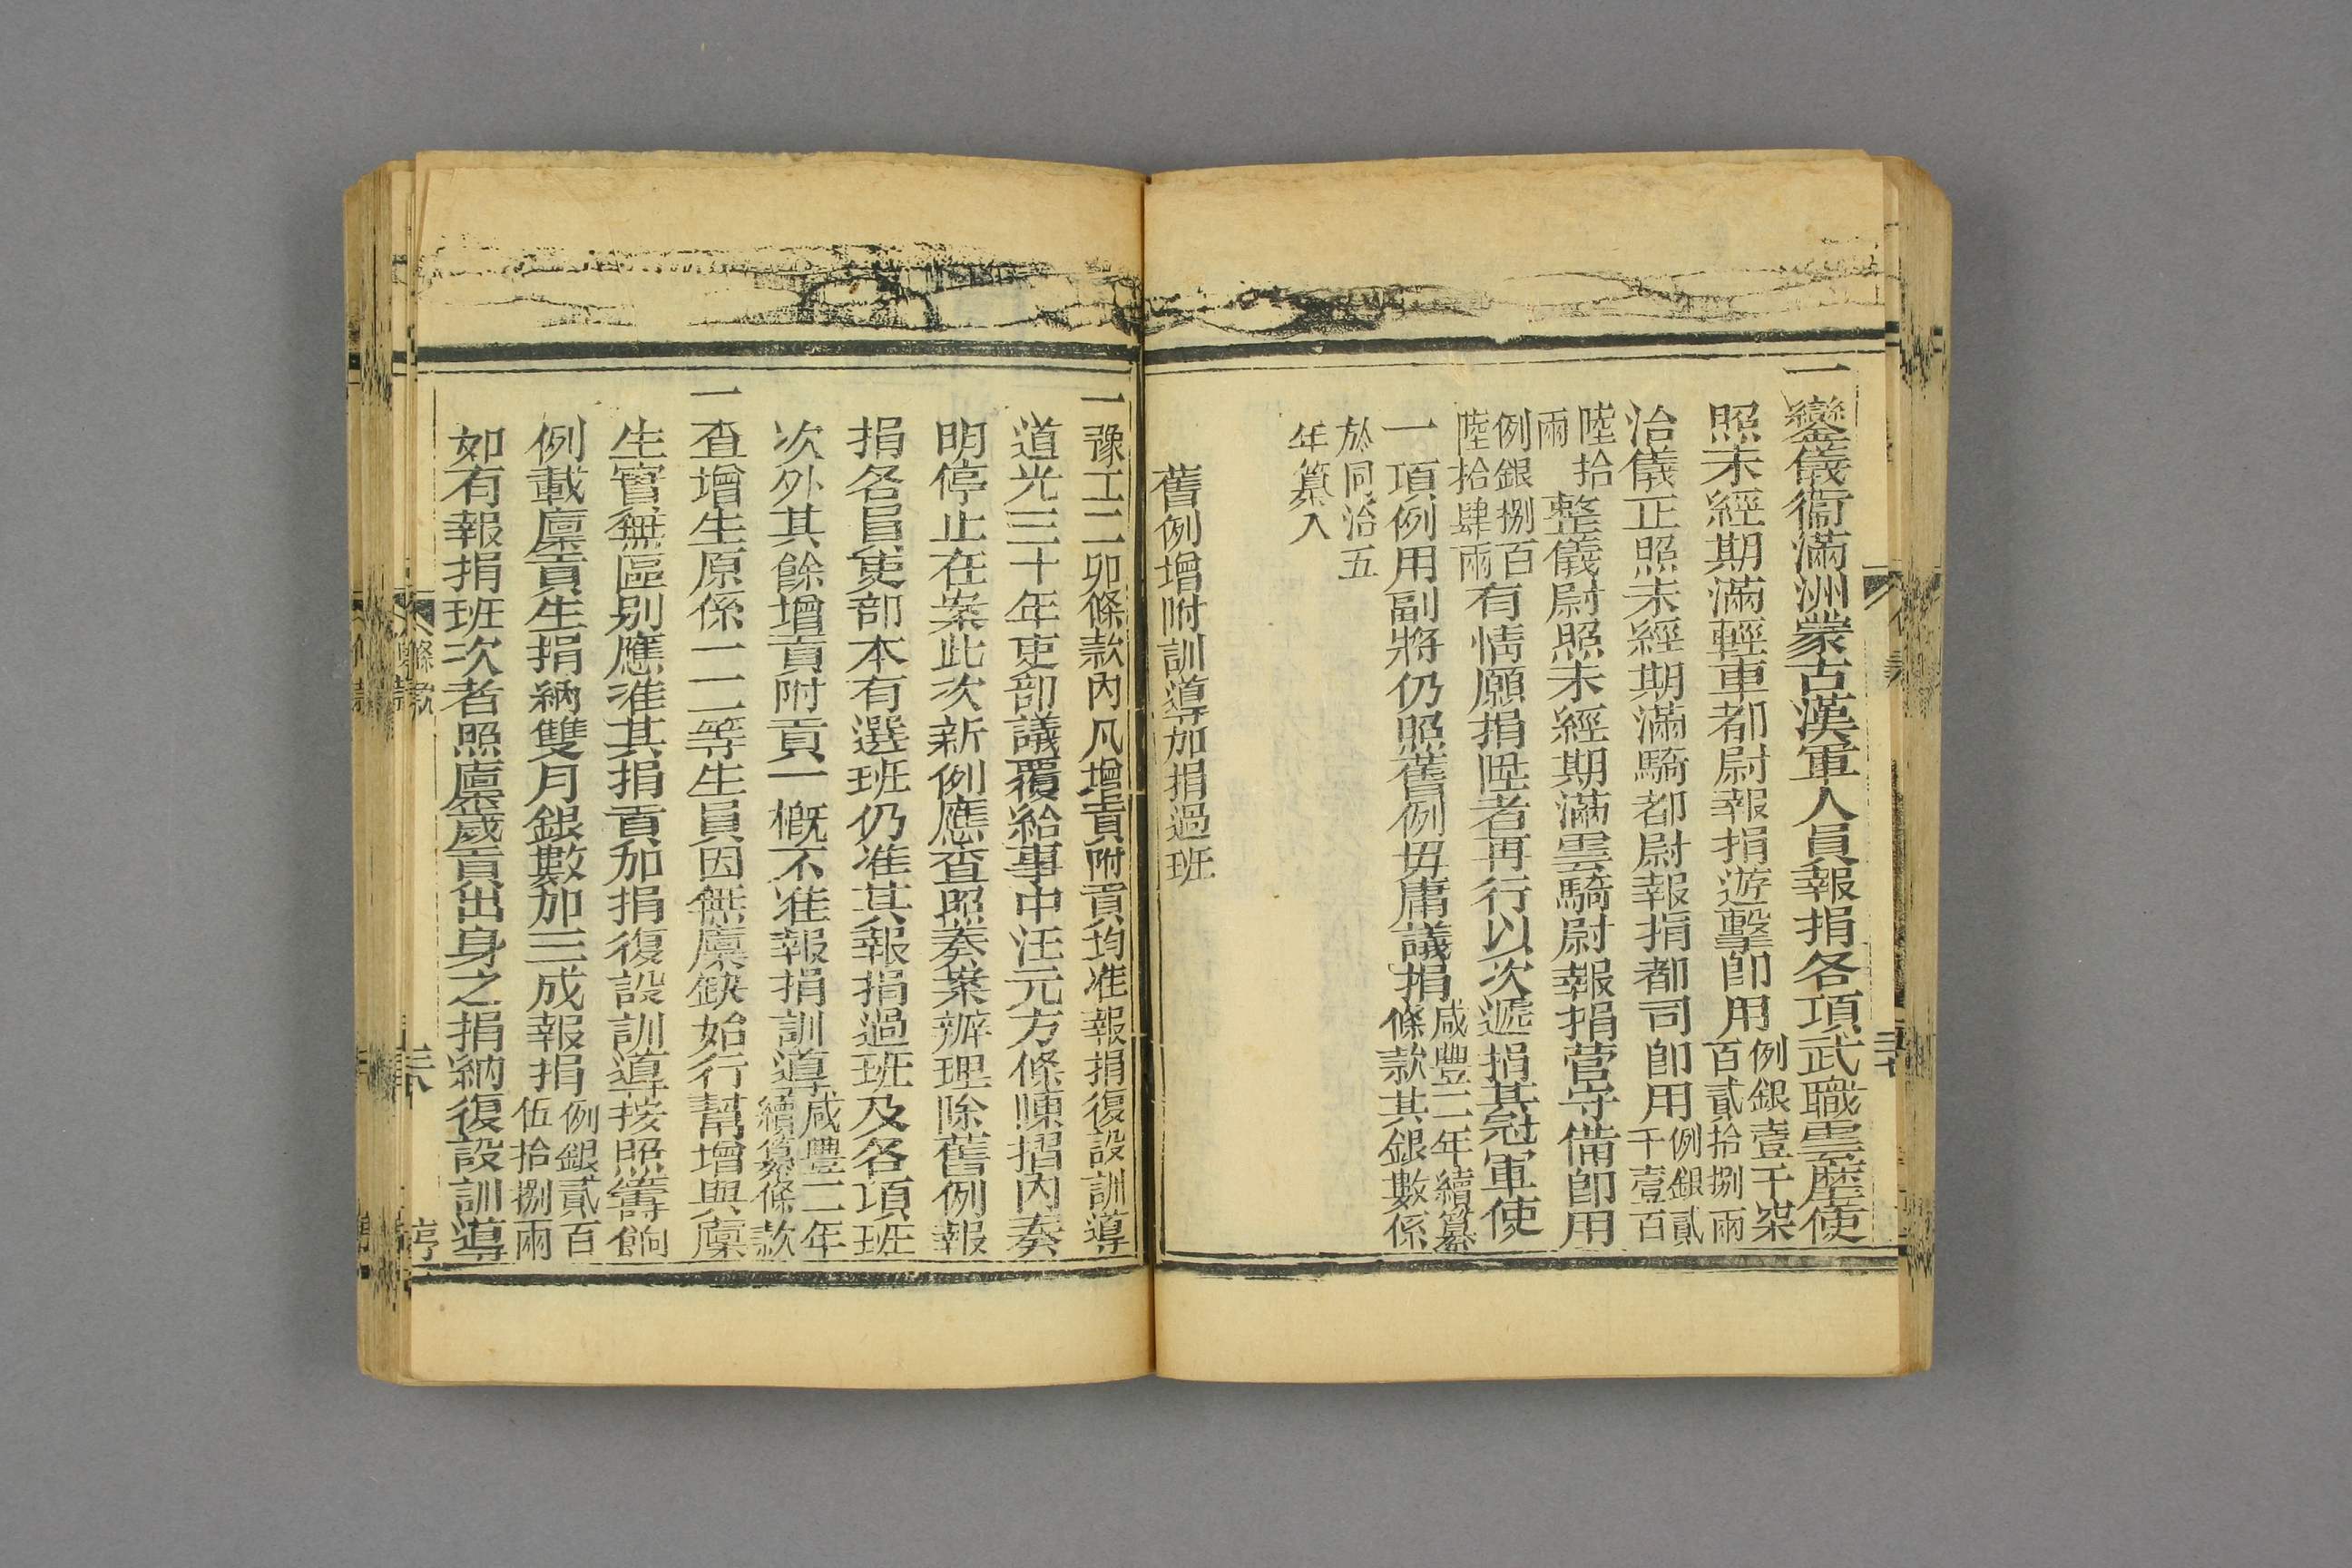 一鑾儀衞滿洲蒙古漢軍人員報捐各項武職雲麾使
照未經期滿輕車都尉報捐遊擊卽用例銀壹千柒百貳拾捌兩
治儀正照未經期滿騎都尉報捐都司卽用例銀貳千壹百
陸拾兩整儀尉照未經期滿雲騎尉報捐營守備卽用
例銀捌百陸拾肆兩有情願捐陞者再行以次遞捐其冠軍使
一項例用副將仍照舊例毋庸議捐咸豐二年續纂條款其銀數係
於同治五年纂入
舊例增附訓導加捐過班
一豫工二卯條款內凡增貢附貢均准報捐復設訓導
道光三十年吏部議覆給事中汪元方條陳摺內奏
明停止在案此次新例應查照奏案辦理除舊例報
捐各員吏部本有選班仍准其報捐過班及各項班
次外其餘增貢附貢一概不准報捐訓導咸豐二年續纂條款
一查增生原係一二等生員因無廩缺始行幫增與廩
生實無區别應准其捐貢加捐復設訓導按照籌餉
例載廩貢生捐納雙月銀數加三成報捐例銀貳百伍拾捌兩
如有報捐班次者照廩歲貢出身之捐納復設訓導
條款